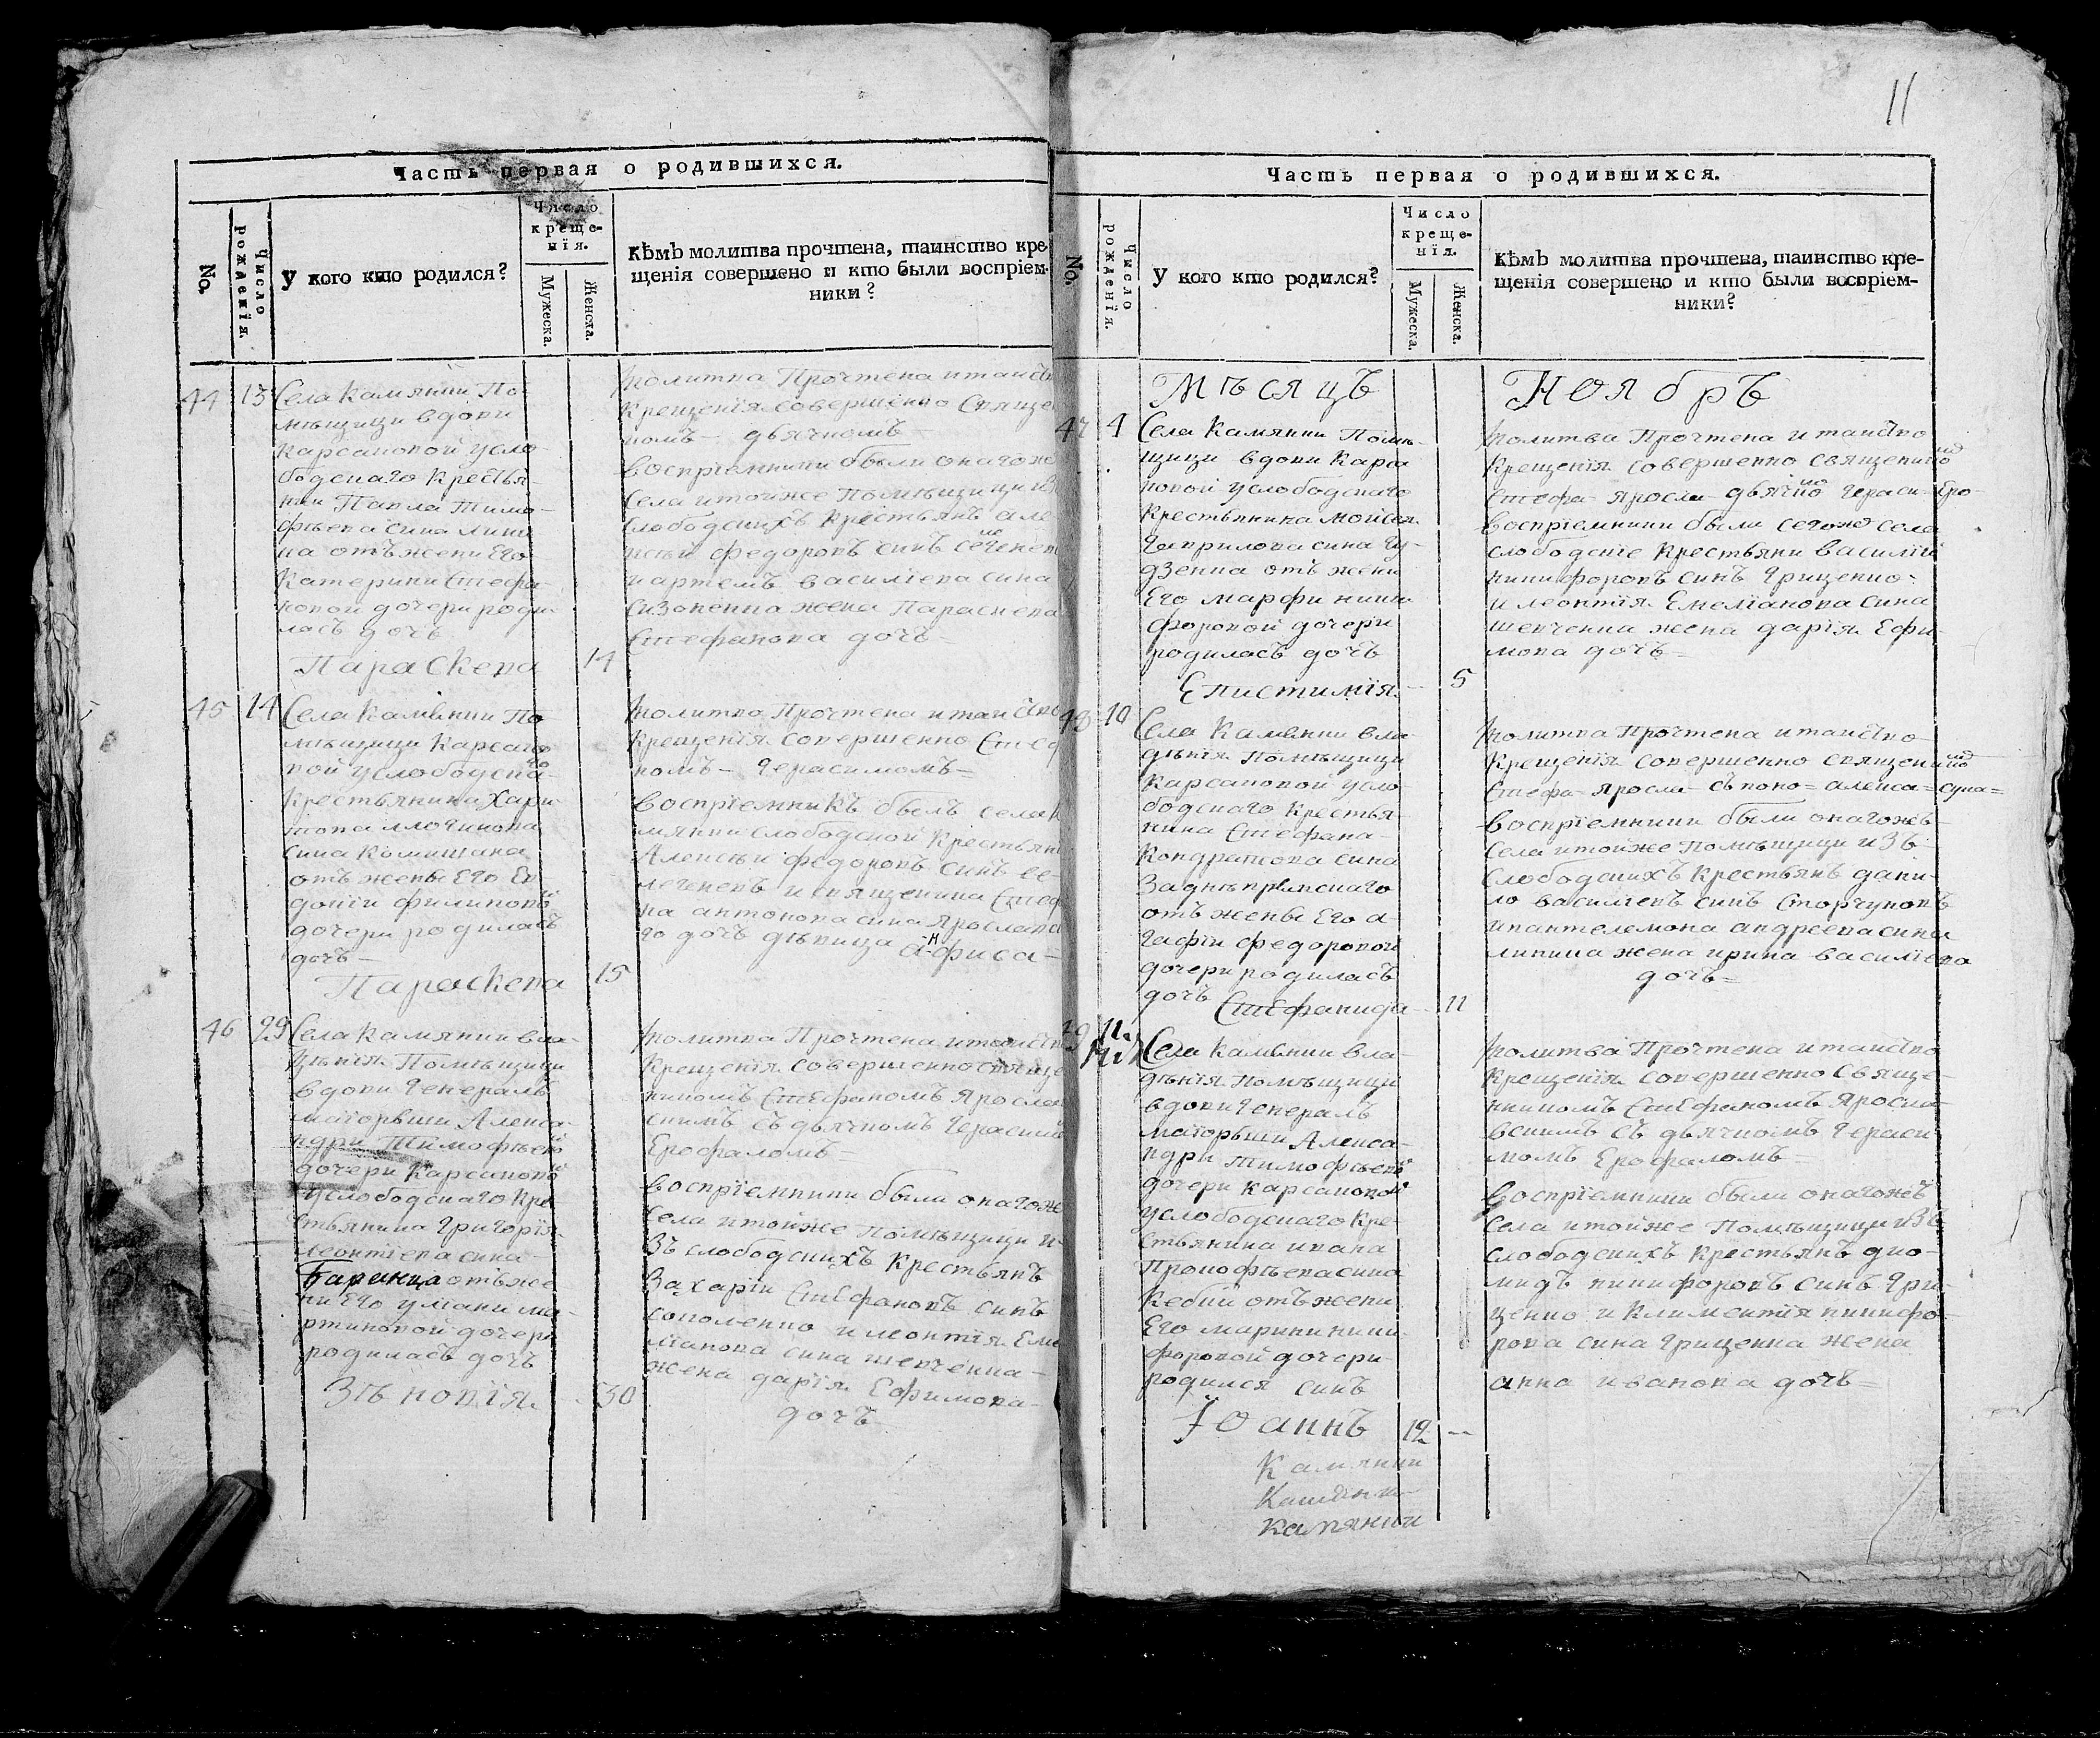 11
Часть первая о родившихся.
No.
Число рожденїя.
У кого кто родился?
Число креще-
нїя.
Мужеска.
Женска.
Кѣмъ молитва прочтена, таинство кре-
щенїя совершено и кто были воспрїем-
ники?
44 13 Села Камянки По-
мѣщици вдови
Карсаковой усло-
бодскаго Крестья-
нки Павла Тимо-
фѣева сина
на отъ жени Его
Катерини Стефа-
новой дочери роди-
лась дочъ
Параскева 14
молитва Прочтена и таиств
Крещенїя совершенно Свяще
комъ - дьячкомъ -
воспрїемники были онагоже
Села и тойже Помѣщици изъ
Слободскихъ Крестьянъ Але
ксѣй федоровъ синъ
и артемъ василїева сина
Сизоненка жена Параскева
Стефанова дочъ -
45 14 Села Камянки По-
мѣщици Карсако
вой услободска-
Крестьянина Хари
тона логвинова
сина Комишана
отъ жены Его Ев
докїи филиповой
дочери родилась
дочъ -
Параскева 15
молитва Прочтена и таиства
Крещенїя совершенно Стеф
комъ - Герасимомъ -
Воспрїемникъ былъ села К
мянки слободской Крестьян
Алексѣй федоровъ синъ Се-
легеневъ и священника Стеф
на антонова сина Ярославска
го дочъ дѣвица анфиса -
46 29 Села Камянки вла-
дѣнїя Помѣщици
вдови Генералъ
маїорьши Алекса-
ндри Тимофѣевой
дочери Карсаковой
услободскаго Кре-
стьянина Григорїя
леонтїева сина
Баранца отъ же
ни Его улїани ма-
ртиновой дочери
родилась дочъ
Зѣновїя 30
молитва Прочтена и таиств
Крещенїя совершенно Свяще
никомъ Стефаномъ Ярослав
скимъ съ дьячкомъ Герасим
Ерофаломъ -
воспрїемники были онагоже
села и тойже Помѣщици и
зъ слободскихъ Крестьянъ
Захарїи Стефановъ синъ
соколенко и леонтїя Еме
лїанова сина шевченка -
жена дарїя Ефимова -
дочъ -
Часть первая о родившихся.
No.
Число рожденїя.
У кого кто родился?
Число креще-
нїя.
Мужеска.
Женска.
Кѣмъ молитва прочтена, таинство кре-
щенїя совершено и кто были воспрїем-
ники?
Мѣсяцъ Ноябръ
47 4 Села Камянки Помѣ-
щици вдови Карса
ковой услободскаго
Крестьянина Мойсея
Гаврилова сина Гу-
дзенка отъ жени
Его марфи ники-
форовой дочери
родилась дочъ
Епистимїя - 5
молитва Прочтена и таиство
Крещенїя совершенно священикомъ
Стефа- яросла- дьячко Гераси- Еро-
воспрїемники были сегожъ села
слободскїе Крестьяни василїй
никифоровъ синъ Гриценко -
и леонтїя Емелїанова сина
шевченка жена дарїя Ефи-
мова дочъ =
48 10 Села Камянки вла-
дѣнїя Помѣщици
Карсаковой усло-
бодскаго Крестья-
нина Стефана -
Кондратова сина
Заднѣпрянскаго
отъ жены Его а-
гафїи федоровой
дочери родилась
дочъ Стефанида - 11
молитва Прочтена и таиство
Крещенїя совершенно священикомъ
Стефа- яросла- съ поно= алекса= сука=
воспрїемники были онагожъ
Села и тойже Помѣщици изъ
слободскихъ Крестьянъ дани-
ло василїевъ синъ Сторчуковъ
и пантелемона андреева сина
жена ирина василїева
дочъ =
49 11 Села Камянки вла-
дѣнїя Помѣщици
вдови Генералъ
маїорьши Алекса-
ндри Тимофѣевой
дочери Карсаковой
услободскаго Кре-
стьянина ивана
Прокофѣева сина
Кебии отъ жени
Его марини ники-
форовой дочери
родился синъ
Їоаннъ 12 -
молитва Прочтена и таиство
Крещенїя совершенно Свяще-
нникомъ Стефаномъ Яросла-
вскимъ съ дьячкомъ Гераси
момъ Ерофаломъ -
Воспрїемники были онагожъ
села и тойже Помѣщици изъ
слободскихъ Крестьянъ дио-
мидъ никифоровъ синъ Гри-
ценко и Климентїя никифо-
рова сина Гриценка жена
анна иванова дочъ =
Камянки
Камянки
Камянки